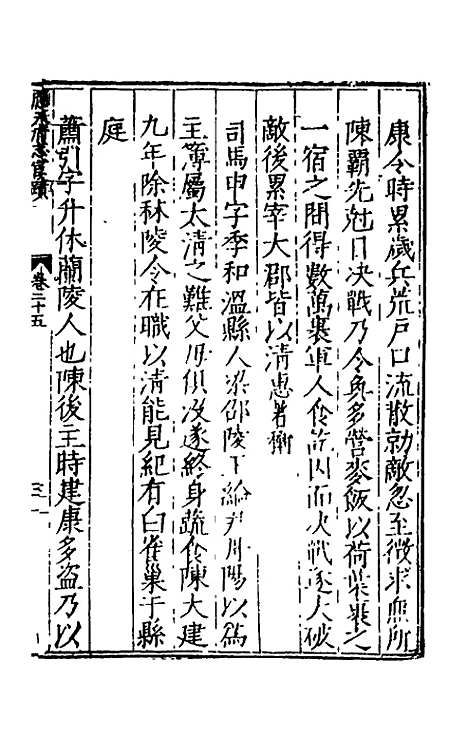 康令時累歲兵荒戶口流散勍敵忽至徵求無所
陳霸先尅日决戰乃令奐多營麥飯以荷葉裹之
一宿之間得數萬裹軍人食訖因而决戰遂大破
敵後累宰大郡皆以清惠著稱
司馬申字季和溫縣人梁邵陵王綸尹丹陽以爲
主簿屬太清之難父母俱没遂終身蔬食陳大建
九年除秣陵令在職以清能見紀有白雀巢于縣
庭
蕭引字升休蘭陵人也陳後主時建康多盜乃以
應天府志宦蹟
卷二十五